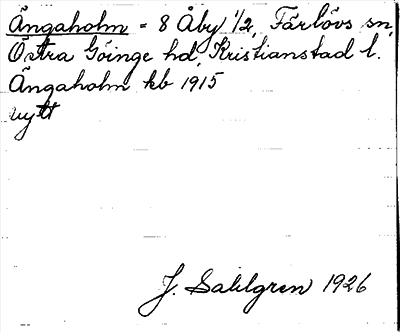 Ängaholm = 8 Åby 1/2, Färlövs sn,
Östra Göinge hd, Kristianstad l.
Ängaholm kb 1915
nytt
J. Sahlgren 1926